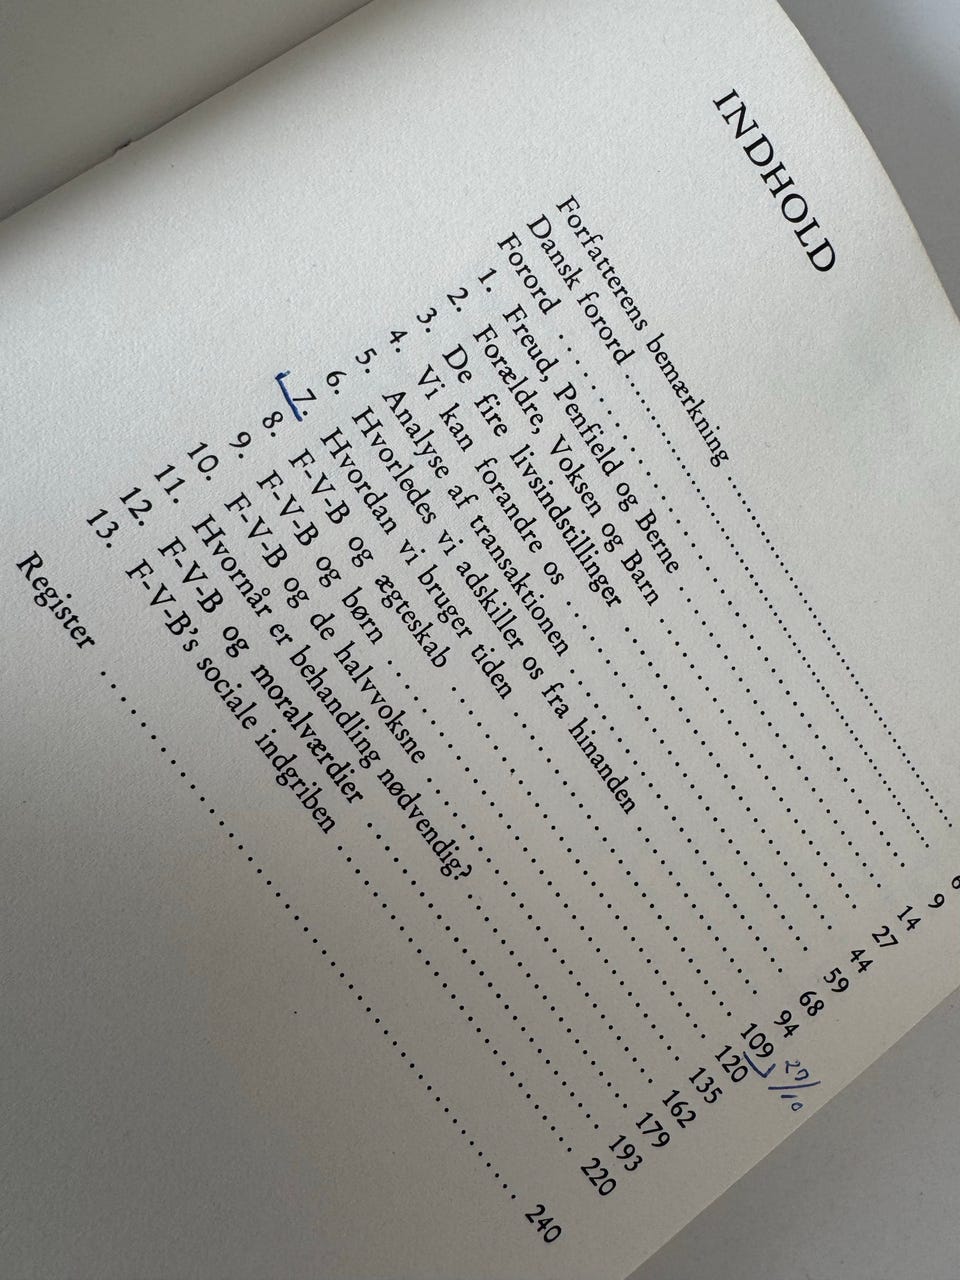 INDHOLD
Forfatterens bemærkning ........................
Dansk forord ........................ 6
Forord ........................ 9
1. Freud, Penfield og Berne ........................ 14
2. Forældre, Voksen og Barn ........................ 27
3. De fire livsindstillinger ........................ 44
4. Vi kan forandre os ........................ 59
5. Analyse af transaktionen ........................ 68
6. Hvorledes vi adskiller os fra hinanden ........................ 94
7. Hvordan vi bruger tiden ........................ 109 27/10
8. F-V-B og ægteskab ........................ 120
9. F-V-B og børn ........................ 135
10. F-V-B og de halvvoksne ........................ 162
11. Hvornår er behandling nødvendig? ........................ 179
12. F-V-B og moralværdier ........................ 193
13. F-V-B's sociale indgriben ........................ 220
Register ........................ 240